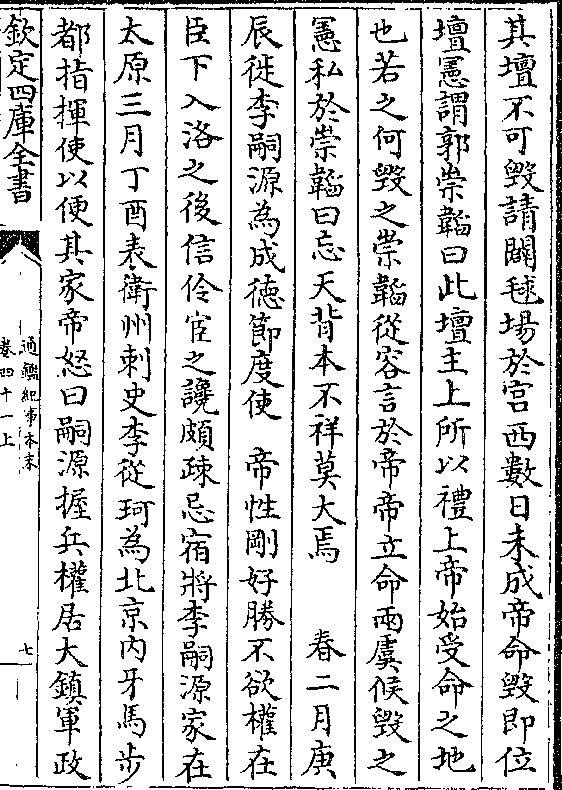 其壇不可毀請闢毬場於宫西數日未成帝命毀即位
壇憲謂郭崇韜曰此壇主上所以禮上帝始受命之地
也若之何毀之崇韜從容言於帝帝立命兩虞候毀之
憲私於崇韜曰忘天背本不祥莫大焉　春二月庚
辰徙李嗣源為成徳節度使　帝性剛好勝不欲權在
臣下入洛之後信伶宦之讒頗疎忌宿將李嗣源家在
太原三月丁酉表衛州刺史李從珂為北京内牙馬步
都指揮使以便其家帝怒曰嗣源握兵權居大鎮軍政
欽定四庫全書
通鑑紀事本末
卷四十一上
七